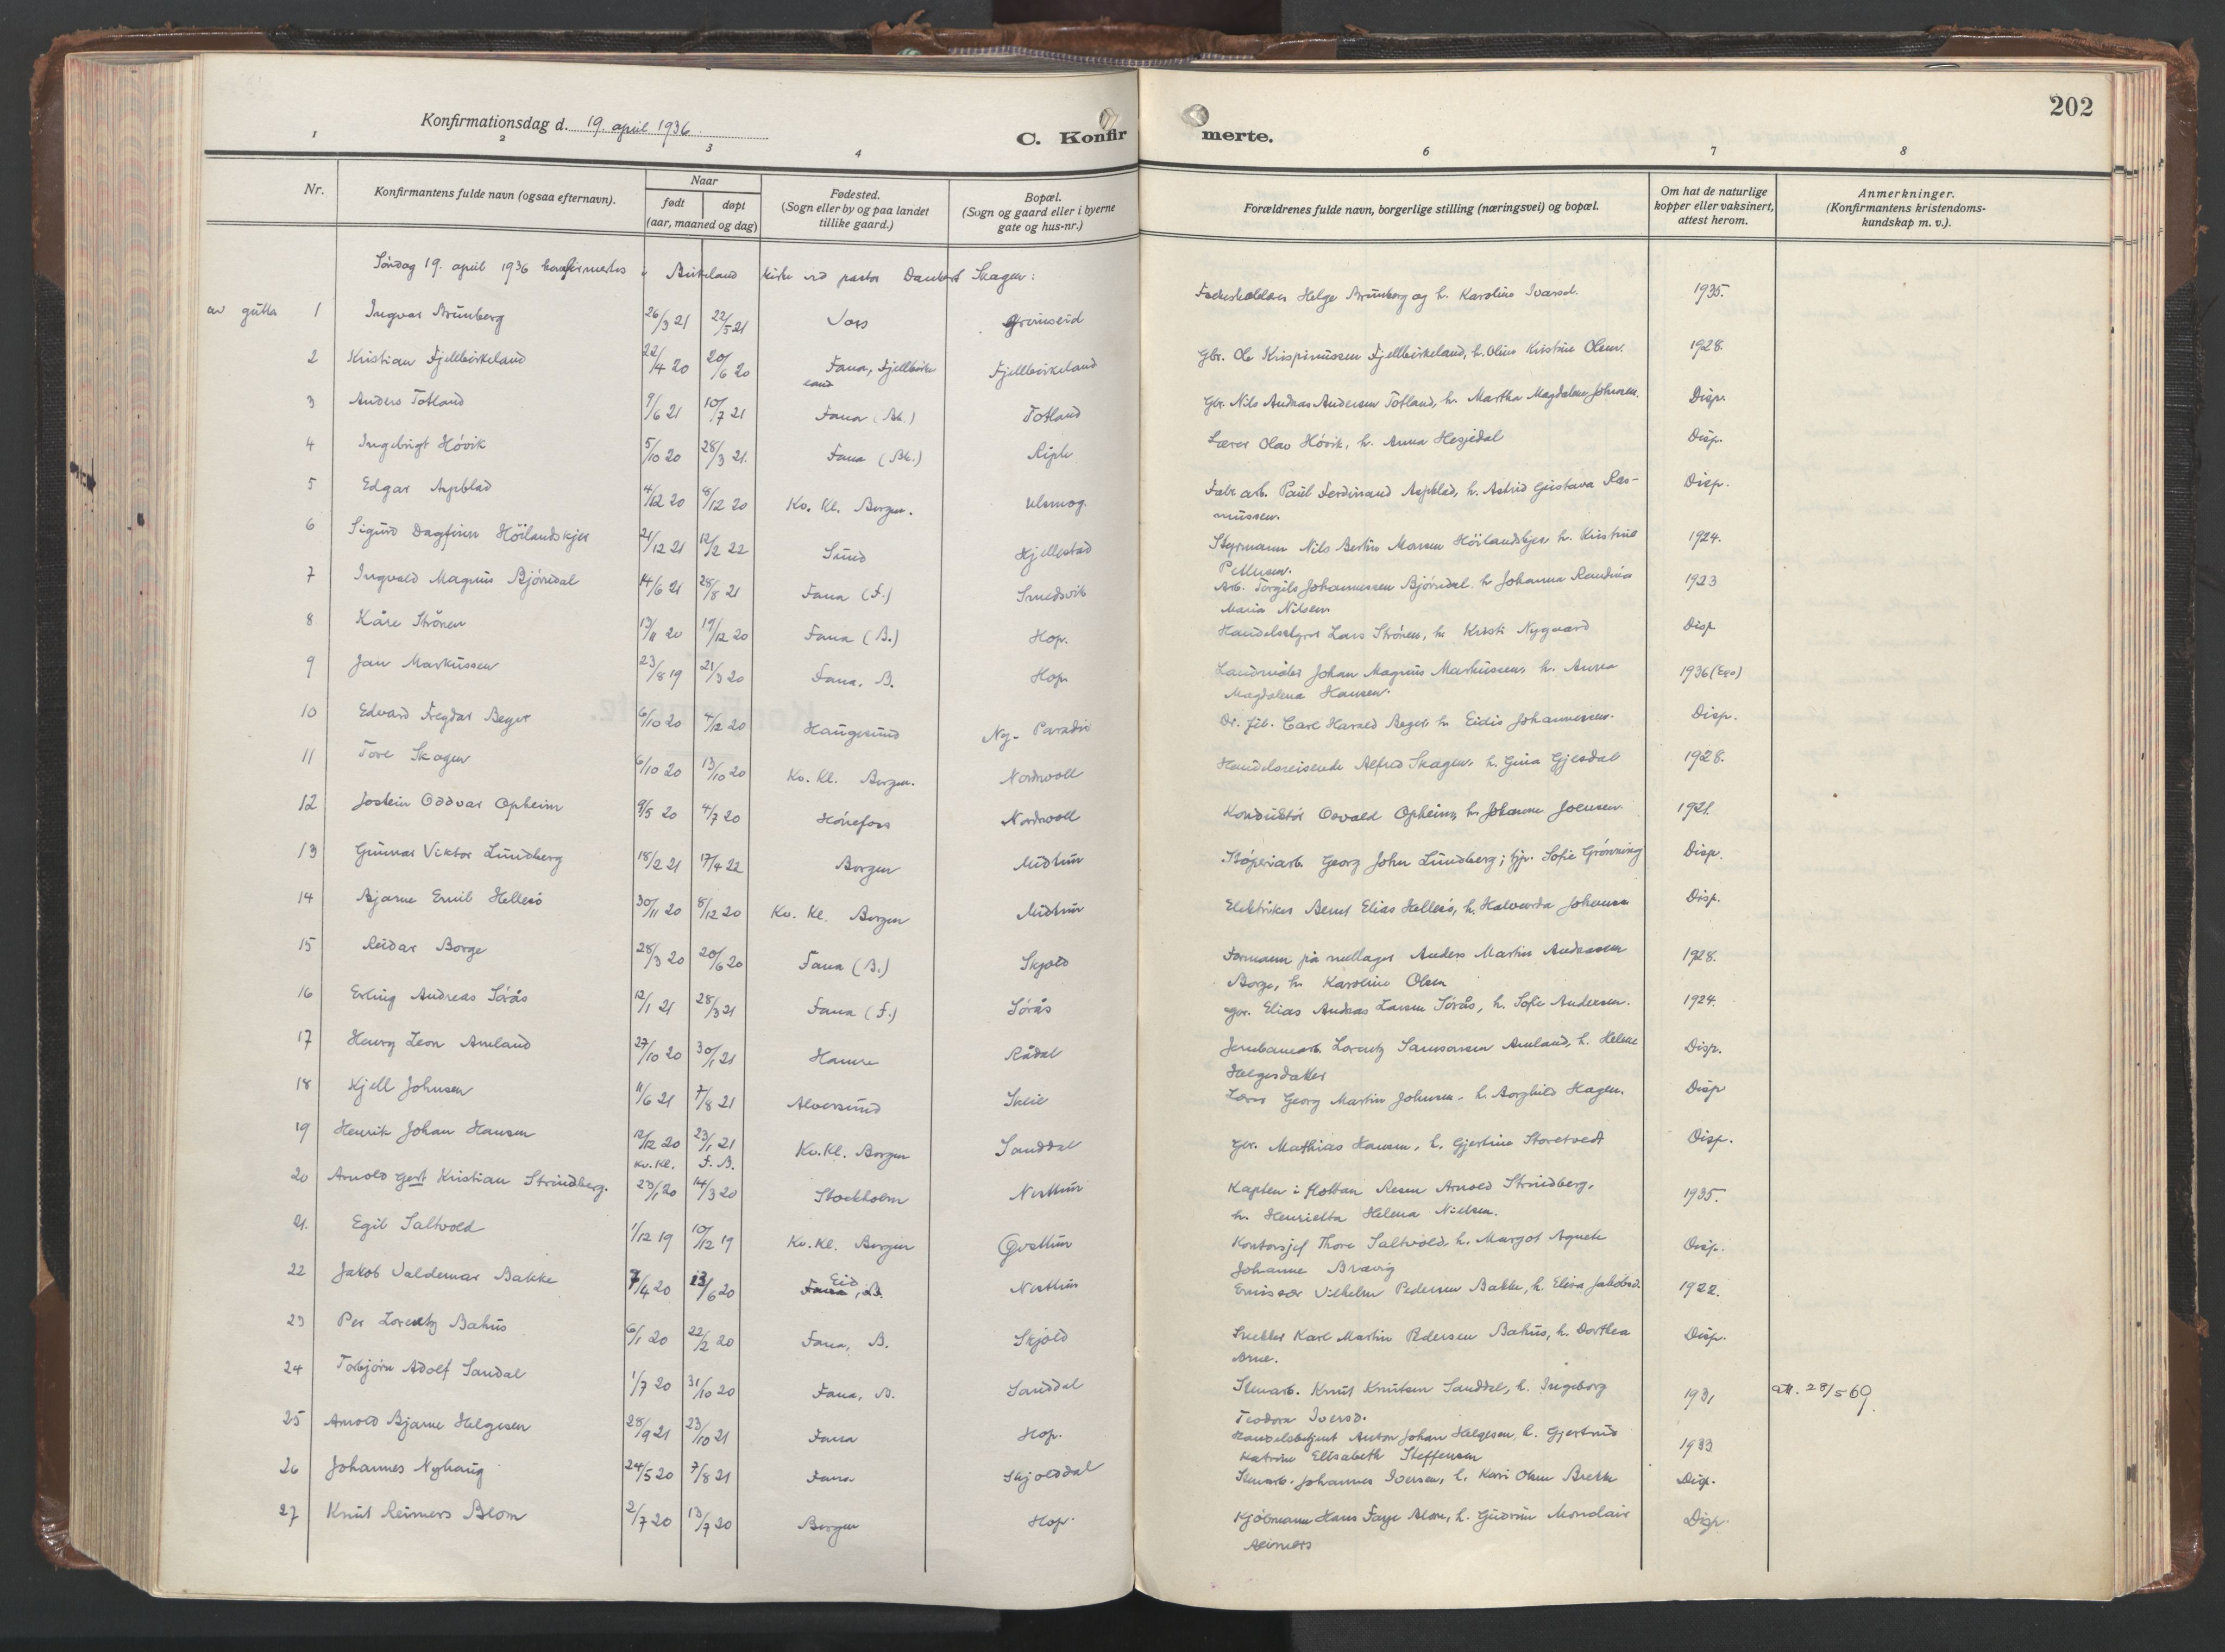 202
Konfirmationsdag d. 19. april 1936.
C. Konfirmerte.
1 2 3 4 6 7 8
Nr. Konfirmantens fulde navn (ogsaa efternavn). Naar født døpt (aar, maaned og dag) Fødested. (Sogn eller by og paa landet tillike gaard.) Bopæl. (Sogn og gaard eller i byerne gate og hus-nr.) Forældrenes fulde navn, borgerlige stilling (næringsvei) og bopæl. Om hat de naturlige kopper eller vaksinert, attest herom. Anmerkninger. (Konfirmantens kristendomskundskap m. v.).
Søndag 19. april 1936 konfirmertes i Birkeland kirke ved pastor Dankert Skagen:
av gutter 1 Ingvar Brünberg 26/3 21 22/5 21 Voss Grimseid Helge Brünberg og h. Karoline Ivarsd. 1935.
2 Kristian Fjellbirkeland 22/4 20 20/6 20 Fana, Fjellbirkeland Fjellbirkeland Gbr. Ole Krispinussen Fjellbirkeland, h. Oline Kristine Olsen. 1928.
3 Anders Totland 9/6 21 10/7 21 Fana (Bk.) Totland Gbr. Nils Andreas Andersen Totland, h. Martha Magdalene Johnsen. Disp.
4 Ingebrigt Hövik 5/10 20 28/3 21. Fana (Bk.) Riple Lærer Olav Hövik, h. Anna Hesjedal Disp.
5 Edgar Aspblad 4/12 20 8/12 20 Kv. Kl. Bergen. Ulsmog. Fabr. arb. Paul Ferdinand Aspblad, h. Astrid Gustava Ras-
mussen. Disp.
6 Sigurd Dagfinn Höilandskjer 21/12 21 12/2 22 Sund Hjellestad Styrmann Nils Bertin Monsen Höilandskjer h. Kristine
Pettersen. 1924.
7 Ingvald Magnus Bjørndal 14/6 21 28/8 21 Fana (F.) Smedsvik Arb. Torgils Johannessen Bjørndal. h. Johanna Randina
Maria Nilsen 1923
8 Kåre Strönen 13/11 20 19/12 20 Fana (B.) Hop. Handelsstyrer Lars Strönen, h. Kristi Nygaard Disp
9 Jan Markussen 23/8 19 21/3 20 Fana, B. Hop. Landmåler Johan Magnus Markussen, h. Anna
Magdalena Hansen. 1936 (Ego)
10 Edvard Fregdar Beger 6/10 20 4/12 20 Haugesund Ny-Paradis Dr. fil. Carl Harald Beger h. Eidis Johannessen. Disp.
11 Tore Skagen 6/10 20 13/10 20 Kv. Kl. Bergen. Nordnvoll Handelsreisende Alfred Skagen, h. Gina Gjesdal 1928.
12 Jostein Oddvar Opheim 9/5 20 4/7 20 Hönefoss Nordnvoll Konduktör Osvald Opheim, h. Johanne Joensen 1921.
13 Gunnar Viktor Lundberg 18/2 21 17/4 22 Bergen Midtun Støperiarb. Georg John Lundberg; hj. Sofie Grönning Disp.
14 Bjarne Emil Hellesö 30/11 20 8/12 20 Kv. Kl. Bergen Midtun Elektriker Bernt Elias Hellesö, h. Halvarda Johansen Disp.
15 Reidar Borge 28/3 20 20/6 20 Fana (B.) Skjold Formann på nellager Anders Martin Andreassen
Borge, h. Karoline Olsen 1928.
16 Erling Andreas Sörås 12/1 21 28/3 21 Fana (F.) Sörås Gbr. Elias Andreas Larsen Sörås, h. Sofie Andersen. 1924.
17 Henry Leon Amland 27/10 20 30/1 21 Hamre Rådal Jernbanearb. Lorentz Samsonsen Amland, h. Helene
Helgesdatter Disp.
18 Kjell Johnsen 11/6 21 7/8 21 Alversund Skeie Lærer Georg Martin Johnsen - h. Borghild Hagen. Disp
19 Henrik Johan Hansen 12/12 20 23/1 21 Kv. Kl. Bergen Sanddal Gbr. Mathias Hansen, h. Gjertine Storetvedt Disp.
Kv. Kl. F. B.
20 Arnold Gert Kristian Strindberg. 23/1 20 14/3 20 Stockholm Nesttun Kaptein i Arnold Strindberg,
h. Henrietta Helena Nielsen. 1935.
21. Egil Saltvold 1/12 19 10/12 19 Kv. Kl. Bergen Øvsttun Kontorsjef Thore Saltvold h. Margot Agnete
Johanne Brævig Disp.
22 Jakob Valdemar Bakke 7/4 20 13/6 20 Eid Fana, B. Nesttun Emissær Vilhelm Pedersen Bakke, h. Elisa Jakobsd. 1922.
23 Per Lorentz Bahus 6/1 20 22/2 20 Fana, B. Skjold Snekker Karl Martin Pedersen Bahus, h. Dorthea
Arne. Disp.
24 Torbjørn Adolf Sandal 1/7 20 31/10 20 Fana, B. Sanddal Stenarb. Knut Knutsen Sanddal, h. Ingeborg
Teodora Iversd. 1931 att. 28/5 69.
25 Arnold Bjarne Helgesen 28/9 21 23/10 21 Fana Hop. Handelsbetjent Anton Johan Helgesen, h. Gjertrud
Katrine Elisabeth Steffensen 1933
26 Johannes Nyhaug 24/5 20 7/8 21 Fana Skjolddal Stenarb. Johannes Iversen, h. Kari Olsen Brekke Disp.
27 Knut Reimers Blom 2/7 20 13/7 20 Bergen Hop. Kjøbmann Hans Faye Blom, h. Gudrun Mondair
Reimers Disp.